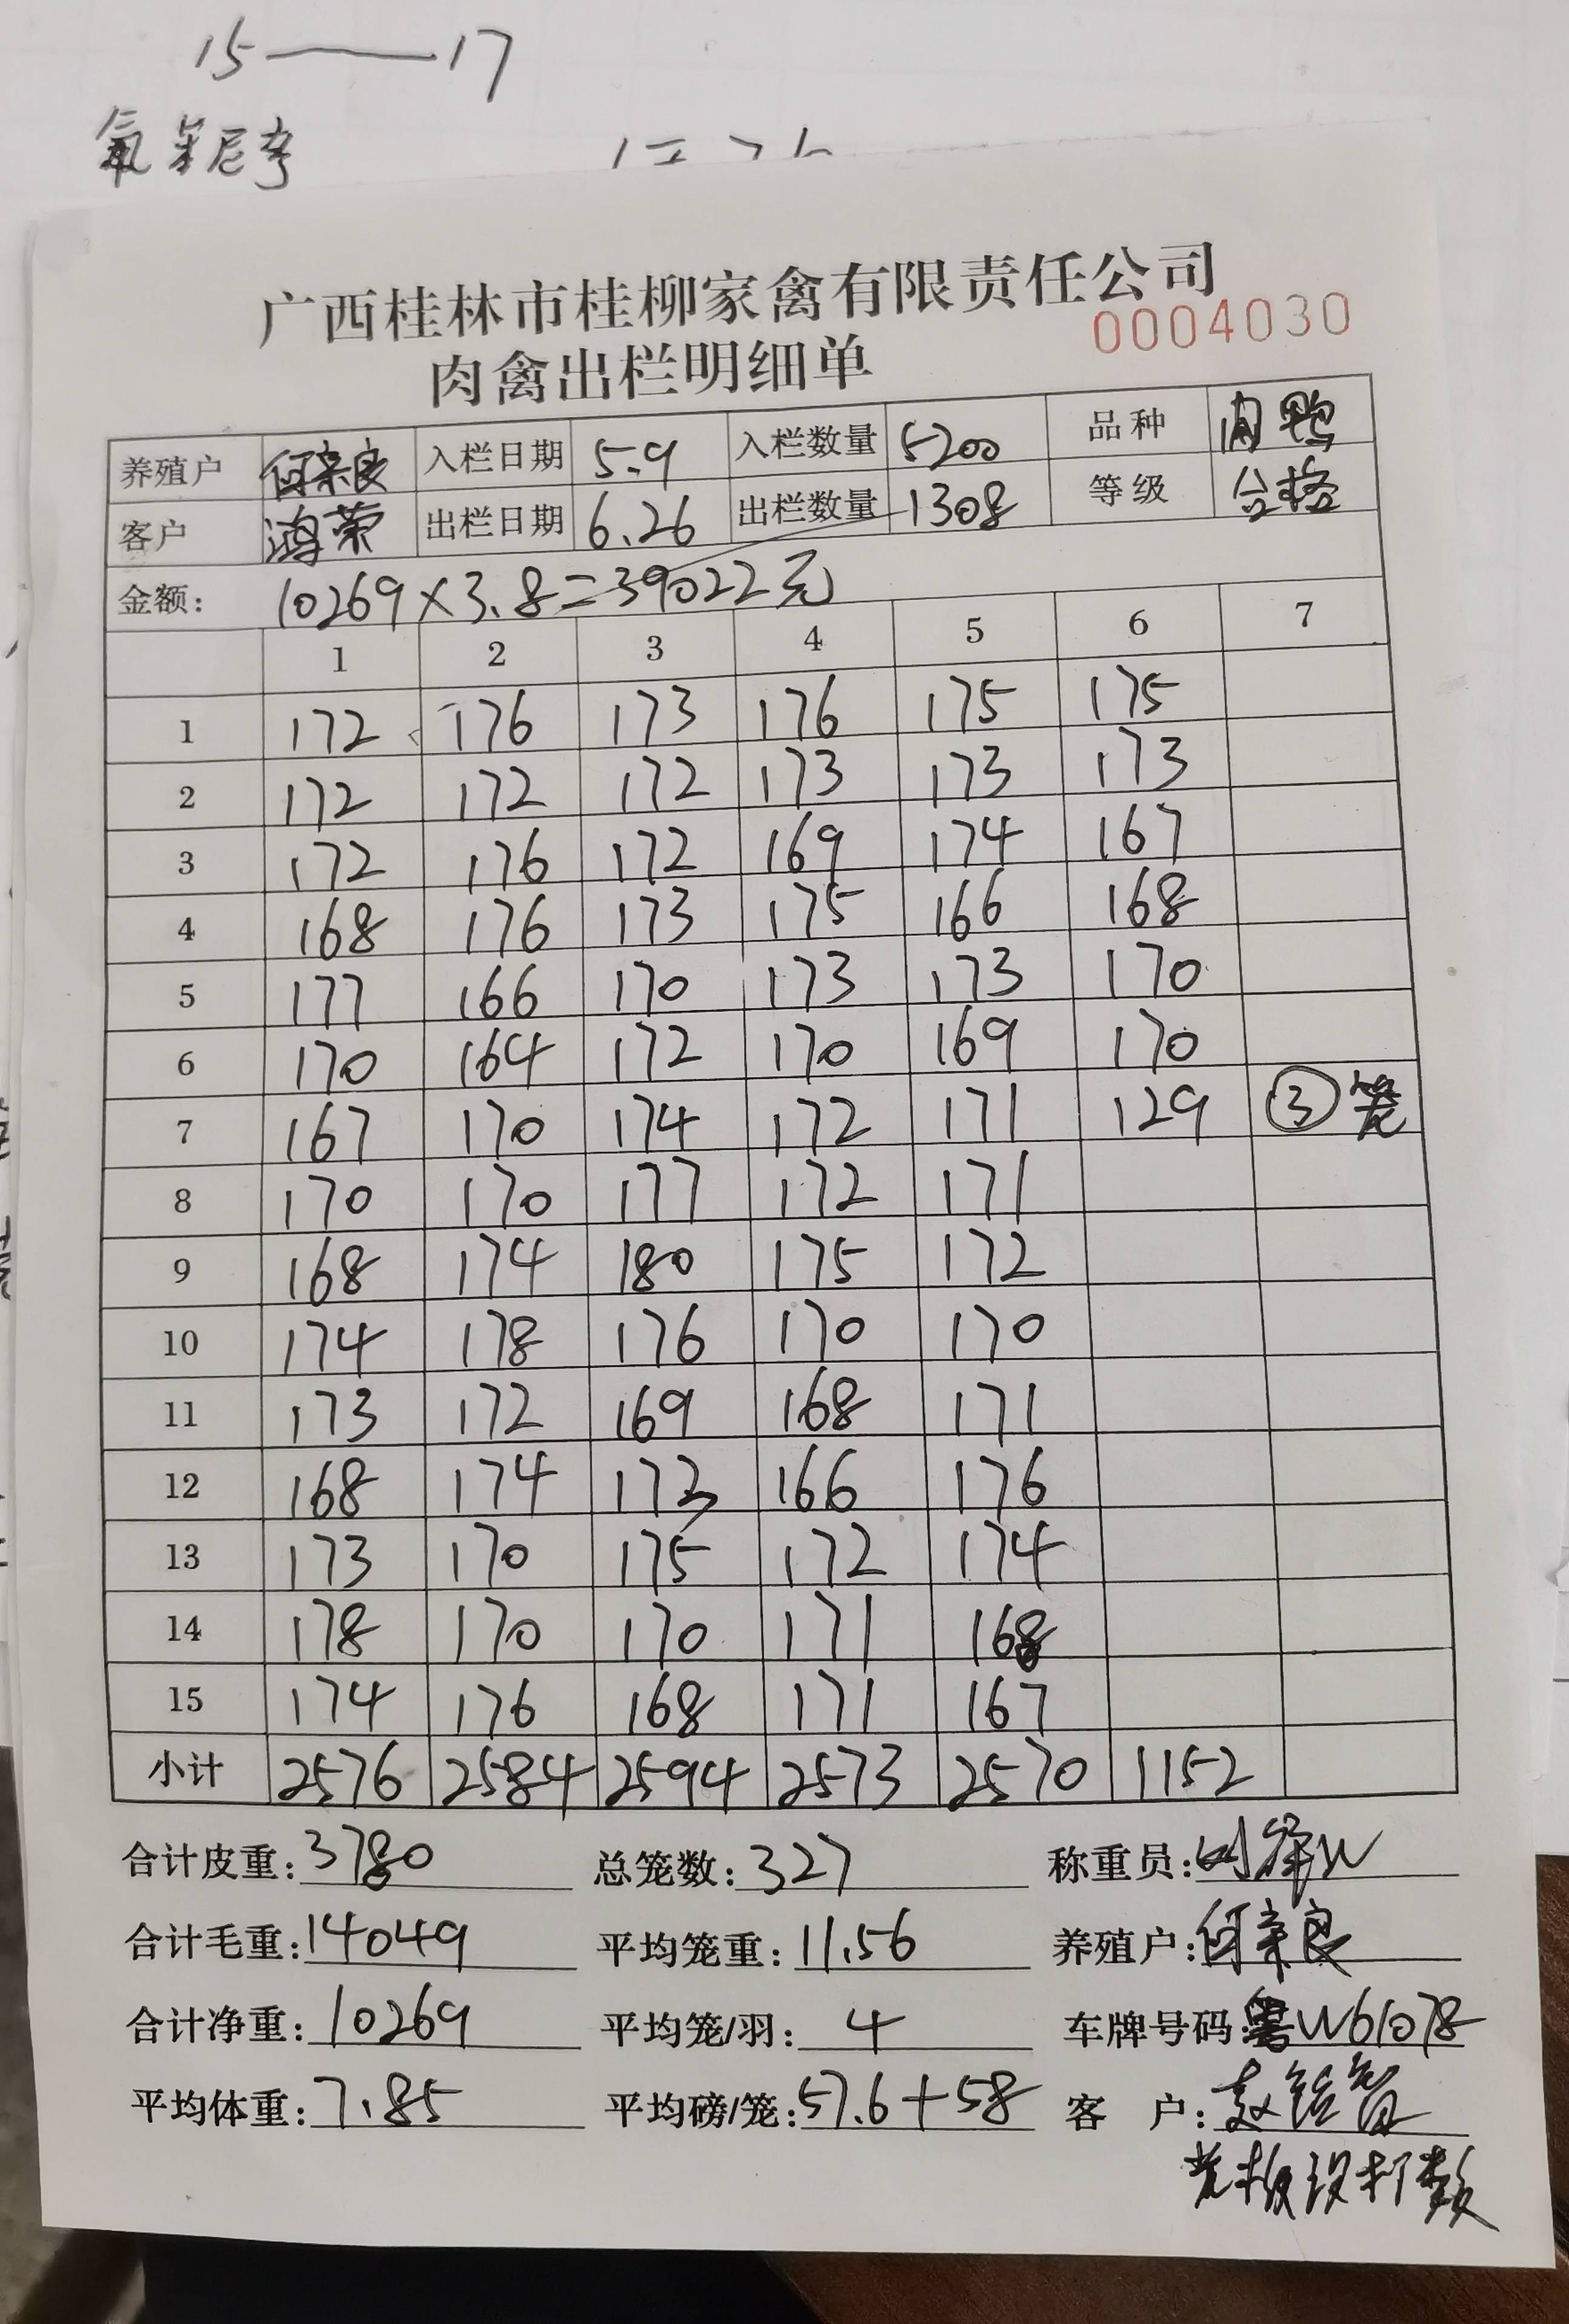 15——17
氟苯尼考
广西桂林市桂柳家禽有限责任公司
0004030
肉禽出栏明细单
养殖户 何亲良 入栏日期 5.9 入栏数量 5200 品种 肉鸭
客户 鸿荣 出栏日期 6.26 出栏数量 1308 等级 合格
金额: 10269×3.8=39022元
1 2 3 4 5 6 7
1 172 176 173 176 175 175
2 172 172 172 173 173 173
3 172 176 172 169 174 167
4 168 176 173 175 166 168
5 177 166 170 173 173 170
6 170 164 172 170 169 170
7 167 170 174 172 171 129 ③笼
8 170 170 177 172 171
9 168 174 180 175 172
10 174 178 176 170 170
11 173 172 169 168 171
12 168 174 173 166 176
13 173 170 175 172 174
14 178 170 170 171 168
15 174 176 168 171 167
小计 2576 2584 2594 2573 2570 1152
合计皮重:3780 总笼数:327 称重员:
合计毛重:14049 平均笼重:11.56 养殖户:何亲良
合计净重:10269 平均笼/羽:4 车牌号码:粤W61078
平均体重:7.85 平均磅/笼:57.6+58 客 户:
老板没打数